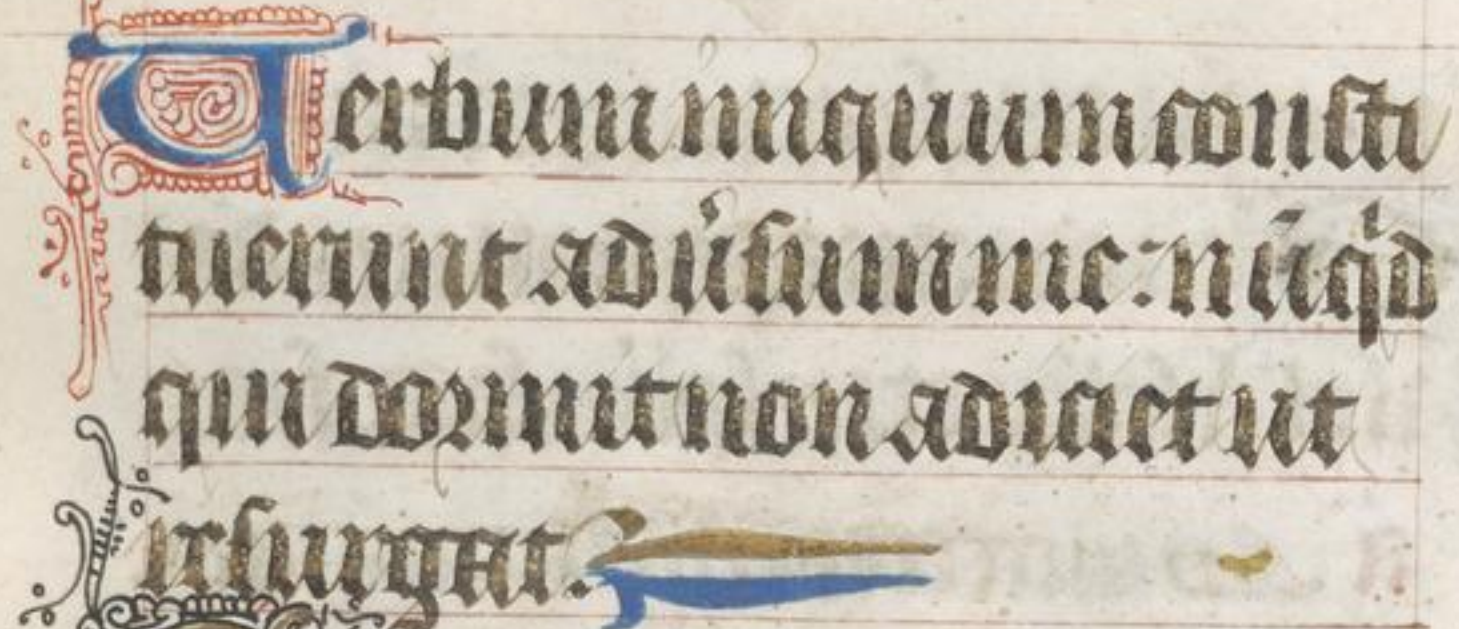 Uerbum iniquum consti
tuerunt adu͛sum me: nūqͥd
qui dormit non adiciet ut
resurgat.